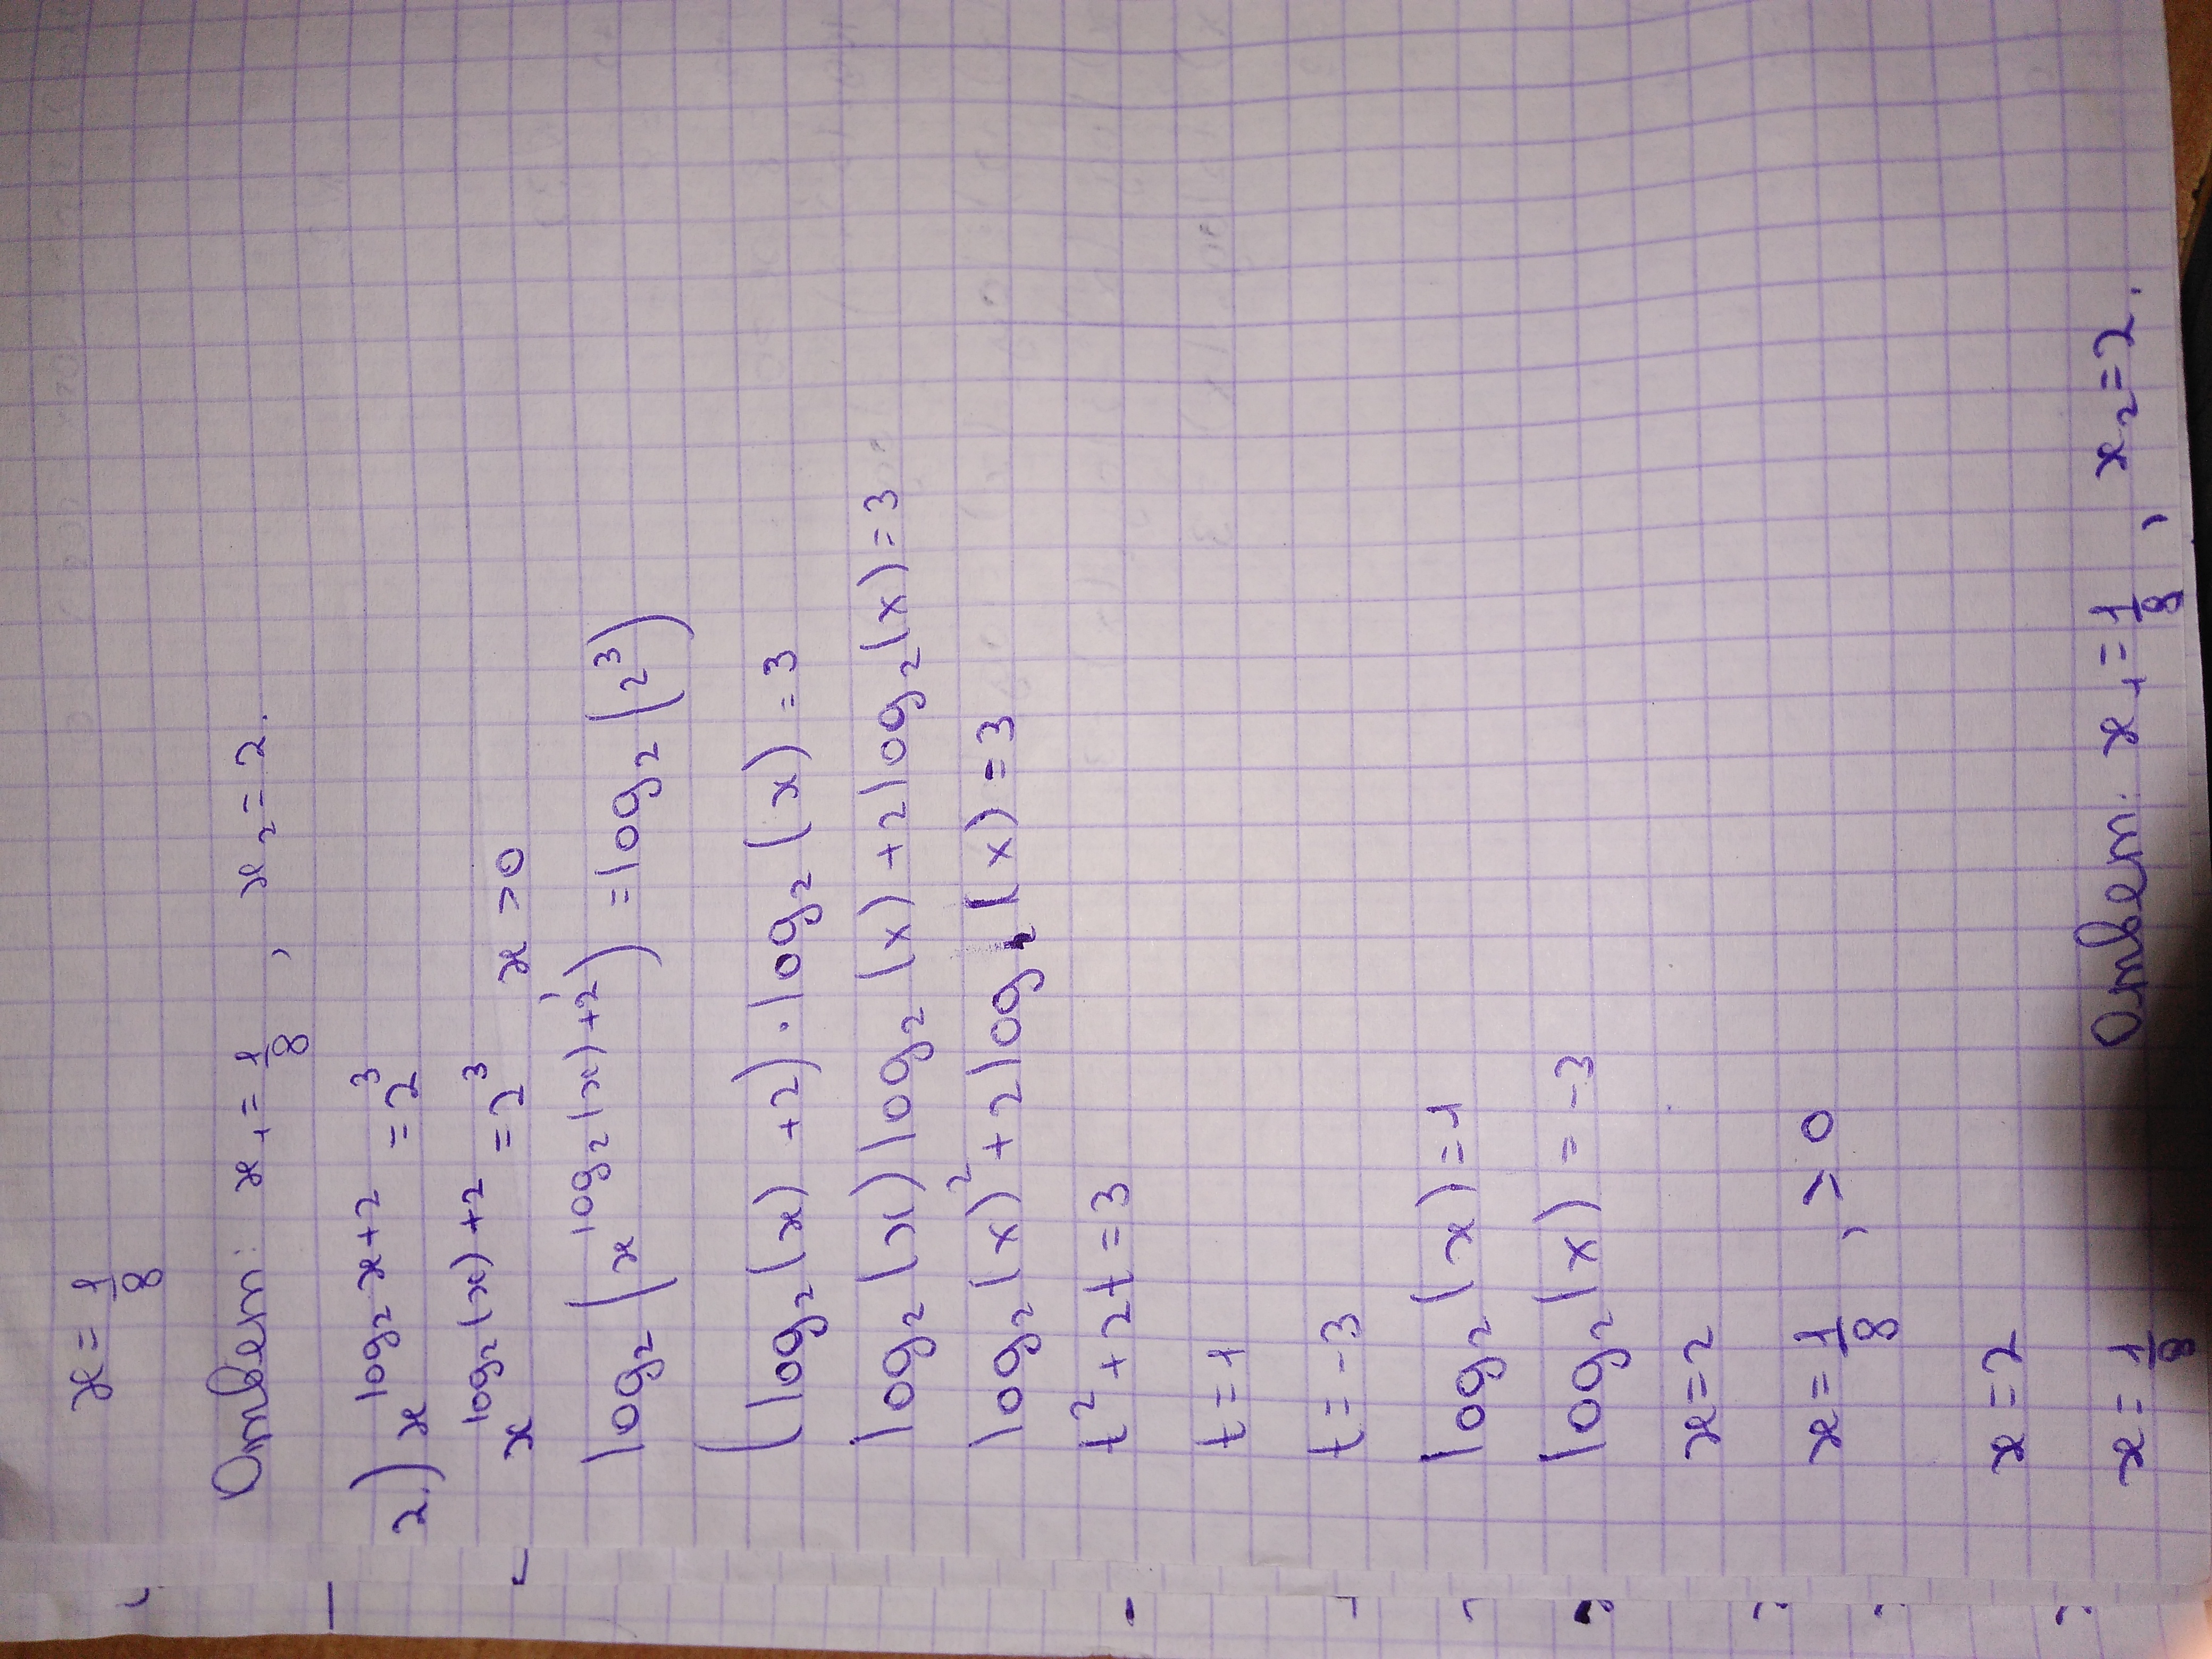 x = 1/8
Ответ: x₁ = 1/8, x₂ = 2.
2.) x^(log₂ x + 2) = 2³
x^(log₂(x) + 2) = 2³ x > 0
log₂(x^(log₂(x) + 2)) = log₂(2³)
(log₂(x) + 2) · log₂(x) = 3
log₂(x) log₂(x) + 2 log₂(x) = 3
log₂(x)² + 2 log₂(x) = 3
t² + 2t = 3
t = 1
t = -3
log₂(x) = 1
log₂(x) = -3
x = 2
x = 1/8, > 0
x = 2
x = 1/8 Ответ: x₁ = 1/8, x₂ = 2.